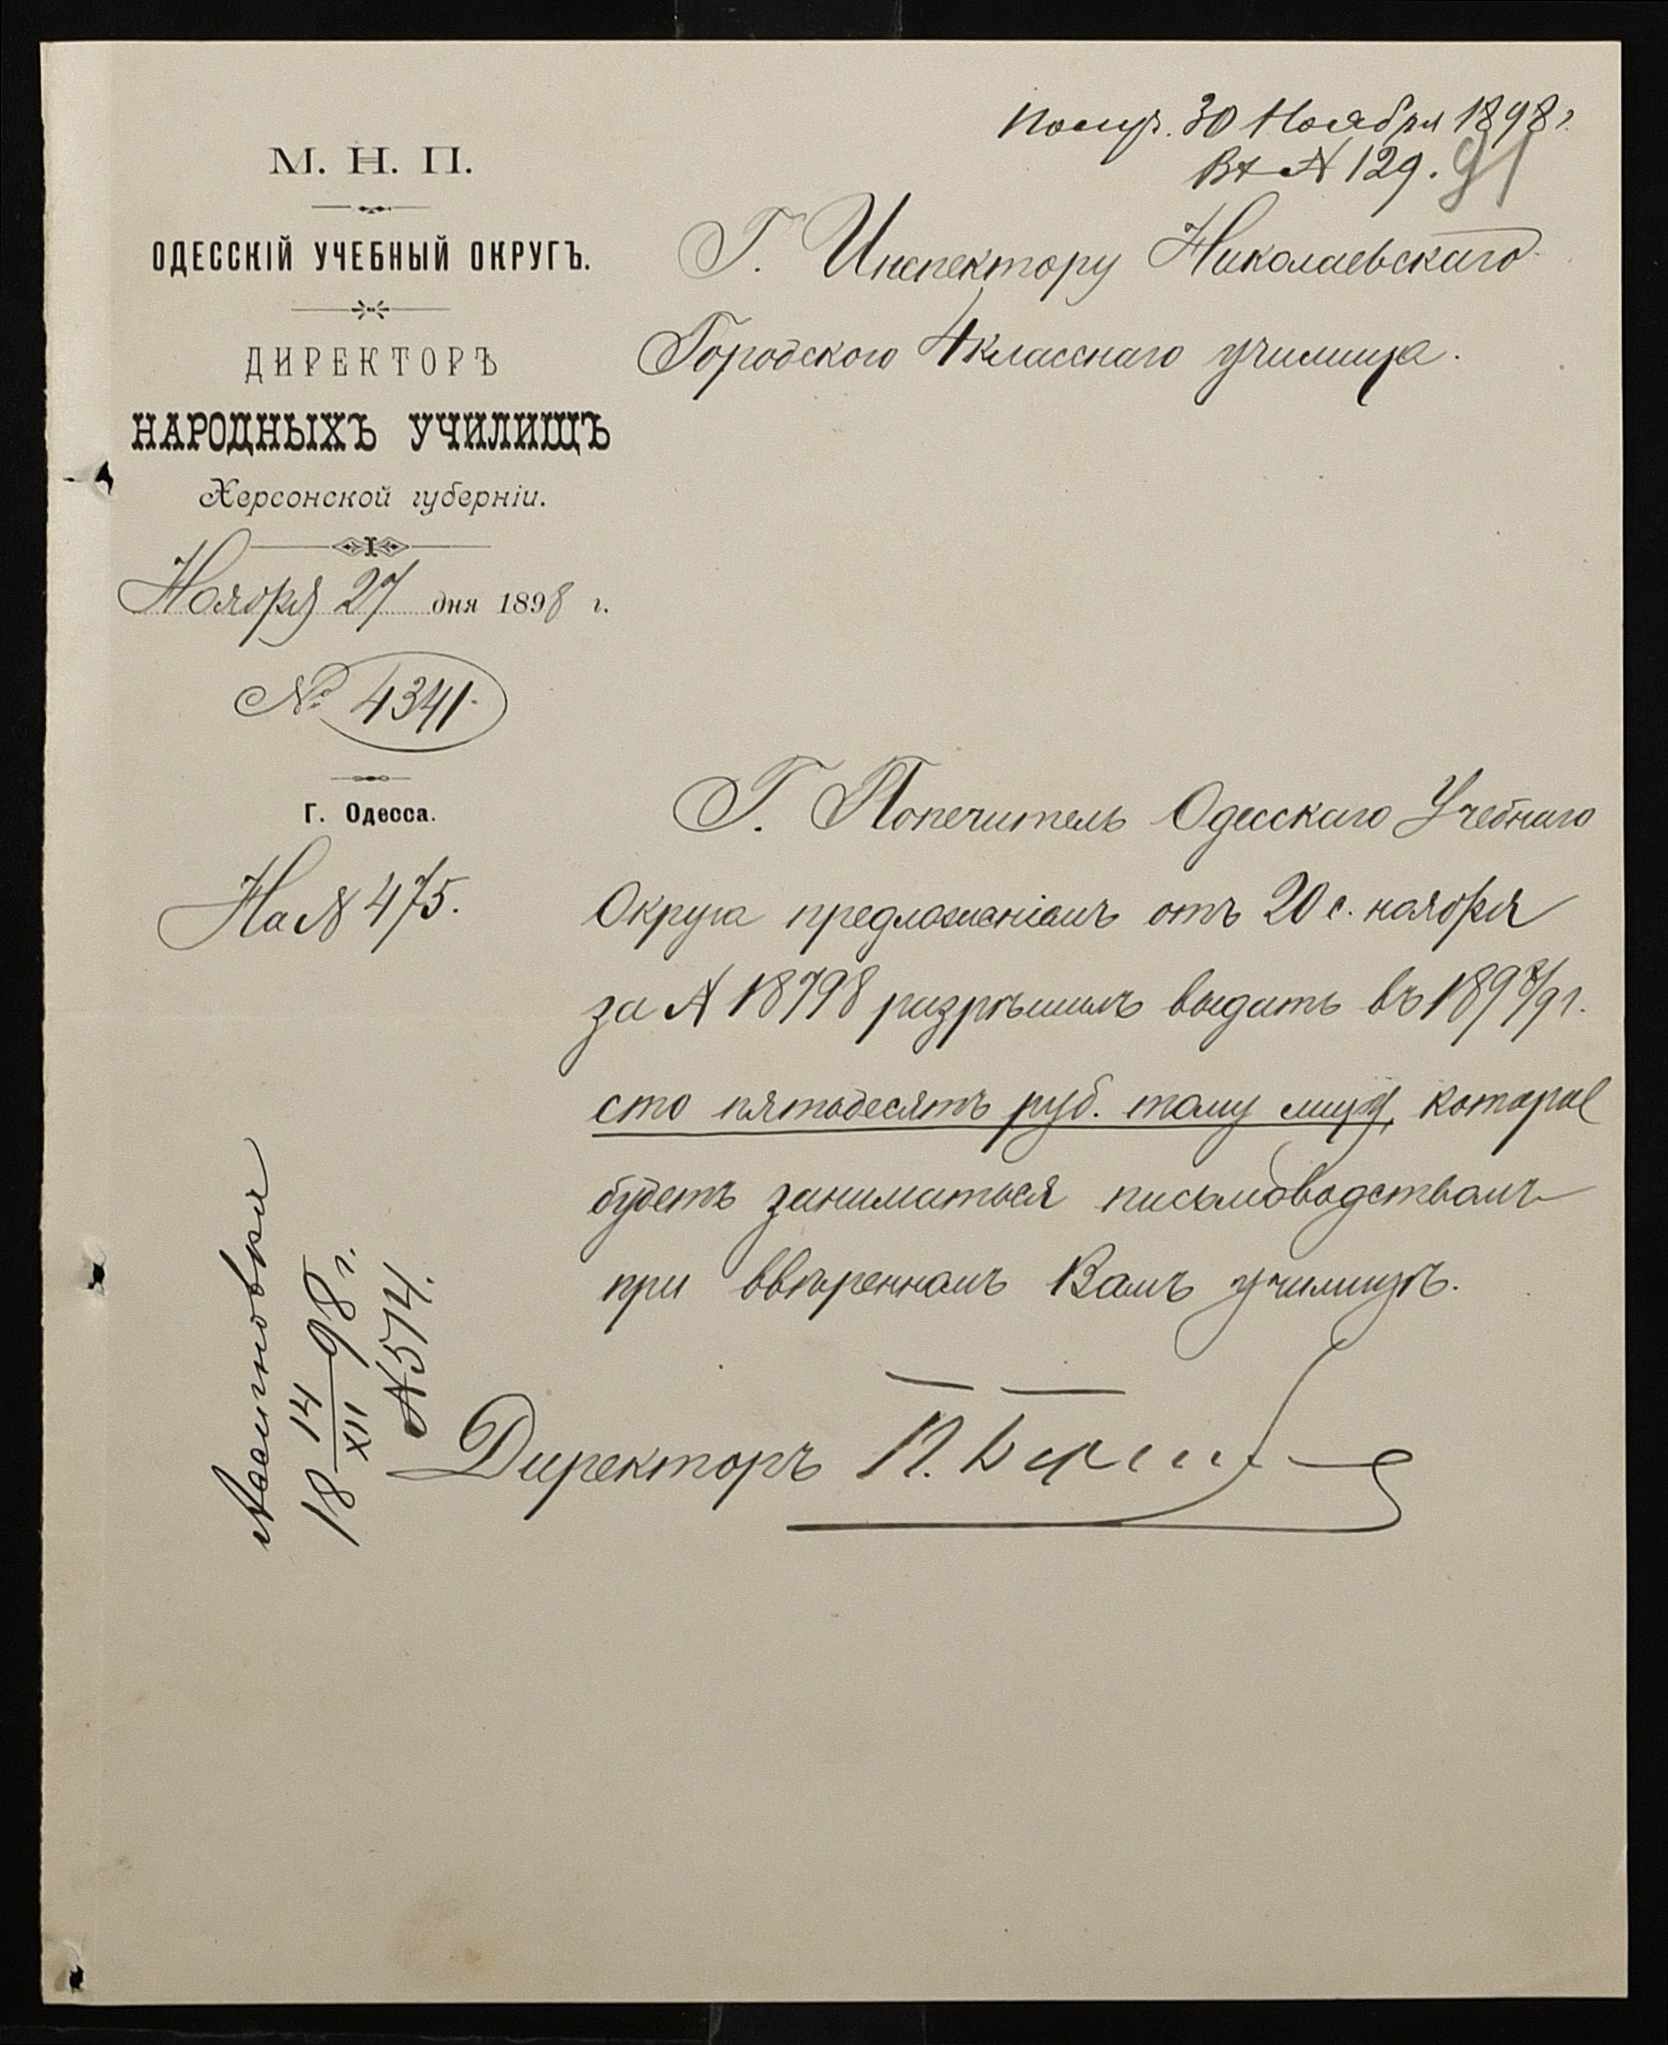 Получ. 30 Ноября 1898 г.
Вх № 129.
91
М. Н. П.
ОДЕССКІЙ УЧЕБНЫЙ ОКРУГЪ.
ДИРЕКТОРЪ
НАРОДНЫХЪ УЧИЛИЩЪ
Херсонской губерніи.
Ноября 27 дня 1898 г.
№ 4341.
Г. Одесса.
На № 475.
Г. Инспектору Николаевскаго
Городского 4класснаго училища.
Г. Попечитель Одесскаго Учебнаго
Округа предложеніемъ отъ 20 с. ноября
за № 18798 разрѣшилъ выдать въ 1898/9 г.
сто пятьдесятъ руб. тому лицу, которое
будетъ заниматься письмоводствомъ
при ввѣренномъ Вамъ училищѣ.
Директоръ П.
18 14/XII 98 г.
№ 574.